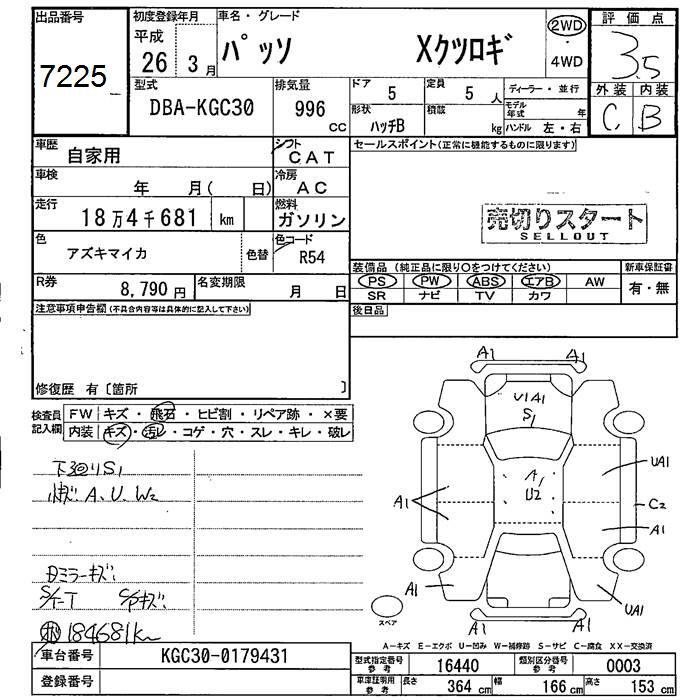 出品番号
7225
初度登録年月
平成
26 3月
車名・グレード
パッソ Xクツロギ
2WD
・
4WD
評価点
3.5
外装 内装
C B
型式
DBA-KGC30
排気量
996
CC
ドア
5
定員
5 人
形状
ハッチB
積載
kg
ディーラー・並行
モデル年式 年
ハンドル 左・右
車歴
自家用
シフト
CAT
車検
年 月( 日)
冷房
AC
走行
18万4千681 km
燃料
ガソリン
色
アズキマイカ
色替
色コード
R54
R券
8,790円
名変期限
月 日
セールスポイント(正常に機能するものに限ります)
売切りスタート
SELLOUT
装備品 (純正品に限り○をつけてください)
PS PW ABS エアB AW
SR ナビ TV カワ
新車保証書
有・無
後日品
注意事項申告欄(不具合内容等は具体的に記入して下さい)
修復歴 有〔箇所 〕
検査員
記入欄
FW キズ・飛石・ヒビ割・リペア跡・×要
内装 キズ・汚レ・コゲ・穴・スレ・キレ・破レ
下回りS1
A、U、W2
Dミラーキズ
184681km
A1 A1
U1A1
S1
A1
U2
UA1
A1
C2
A1
A1
UA1
A1 A1
スペア
A-キズ E-エクボ U-凹み W-補修跡 S-サビ C-腐食 XX-交換済
車台番号
KGC30-0179431
登録番号
型式指定番号
参考
16440
類別区分番号
参考
0003
車庫証明用
参考
長さ
364 cm
幅
166 cm
高さ
153 cm